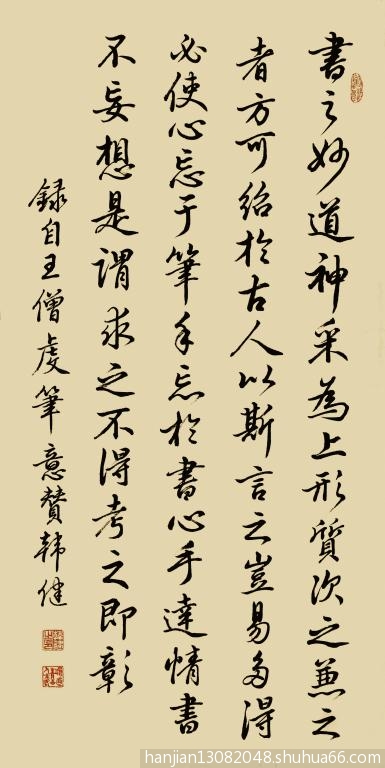 書之妙道神采為上形質次之兼之
者方可紹於古人以斯言之豈易多得
必使心忘于筆手忘於書心手達情書
不妄想是謂求之不得考之即彰
録自王僧虔筆意賛韩健
hanjian13082048.shuhua66.com